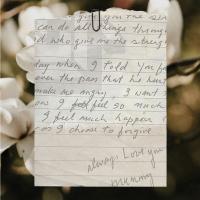 give you the
can do all things through
d who give me the streng
day when I told you
over the pass that he
make me angry, I want
ow I feel feel so much
I feel much happier
cos I choose to forgive
always Love you
mummy